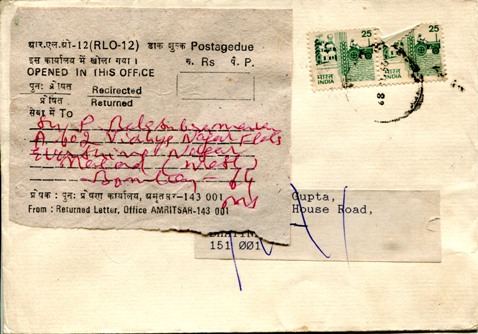 आर.एल.ओ-12 (RLO-12) डाक शुल्क Postagedue
इस कार्यालय में खोला गया। रु. Rs पै. P.
OPENED IN THIS OFFICE
पुनः प्रेषित Redirected
प्रेषित Returned
सेवा में To
Sri P. Balasubramanian
A-602 Vidya Nagar Flats
Evershine Nagar
Malad (West)
Bombay - 64
प्रेषक: पुनः प्रेषण कार्यालय, अमृतसर-143 001
From: Returned Letter, Office AMRITSAR-143 001
25 25
भारत INDIA
Gupta,
House Road,
151 001